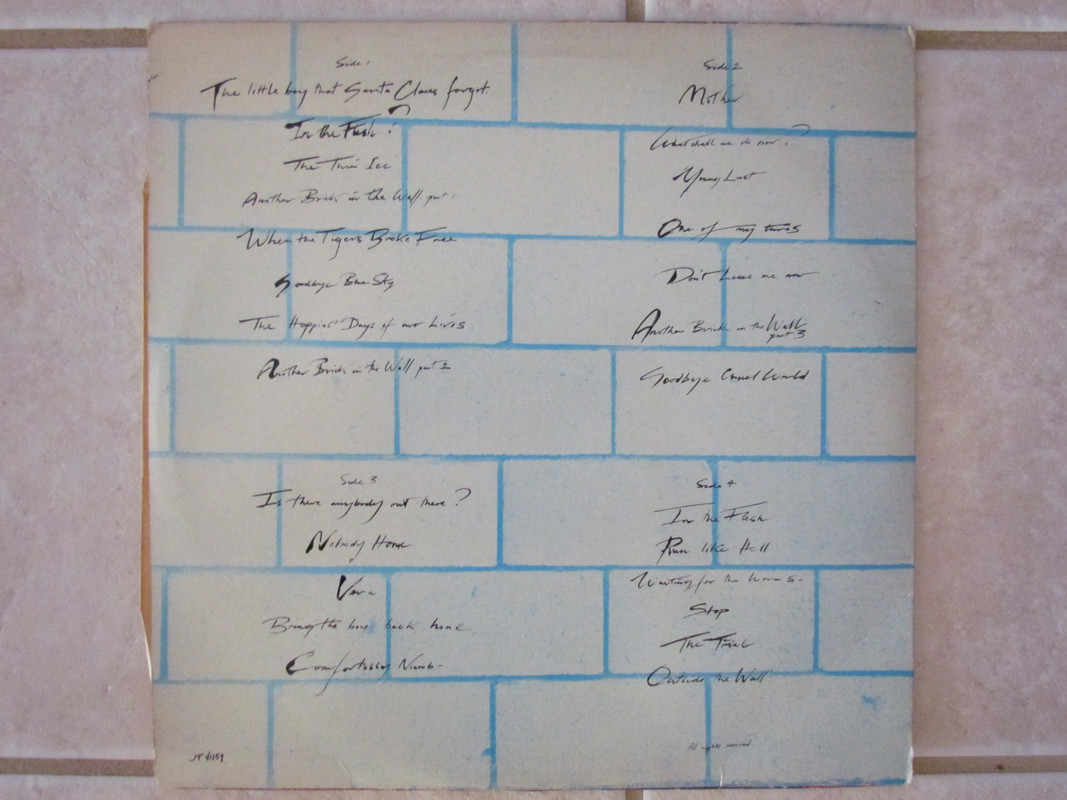 Side 1
The little boy that Santa Claus forgot.
In the Flesh?
The Thin Ice
Another Brick in the Wall part 1
When the Tigers Broke Free
Goodbye Blue Sky
The Happiest Days of our Lives
Another Brick in the Wall part 2
Side 2
Mother
What shall we do now?
Young Lust
One of my turns
Don't Leave me now
Another Brick in the Wall
part 3
Goodbye Cruel World
Side 3
Is there anybody out there?
Nobody Home
Vera
Bring the boys back home
Comfortably Numb
Side 4
In the Flesh
Run like Hell
Waiting for the Worms.
Stop
The Trial
Outside the Wall
All rights reserved